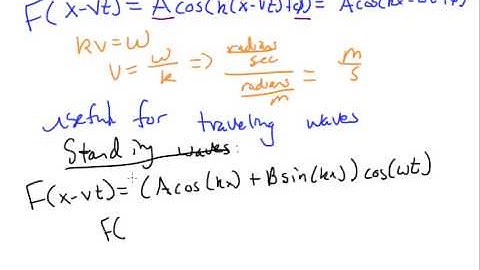 F(x-vt) = Acos(k(x-vt)+φ) = Acos(kx-ωt+φ)
kv = ω
v = ω/k => (radians/sec)/(radians/m) = m/s
useful for traveling waves
Standing waves:
F(x-vt) = (Acos(kx) + Bsin(kx))cos(ωt)
F(